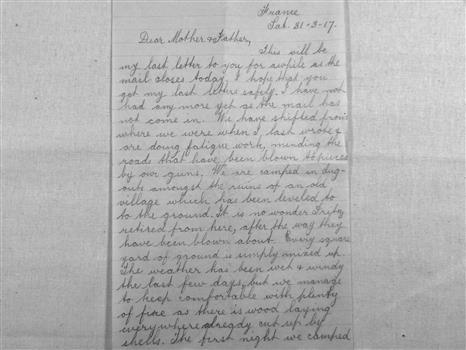 France
Sat. 31-3-17.
Dear Mother & Father,
This will be
my last letter to you for awhile as the
mail closes today. I hope that you
got my last letter safely. I have not
had any more yet as the mail has
not come in. We have shifted from
where we were when I last wrote &
are doing fatigue work, minding the
roads that have been blown to pieces
by our guns. We are camped in dug-
outs amongst the ruins of an old
village which has been leveled to
to the ground. It is no wonder Fritz
retired from here, after the way they
have been blown about. Every square
yard of ground is simply mixed up.
The weather has been wet & windy
the last few days, but we manage
to keep comfortable with plenty
of fire as there is wood laying
everywhere already cut up by
shells. The first night we camped